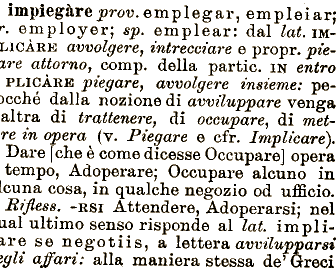 impiegàre prov. emplegar, empleiar;
r. employer; sp. emplear: dal lat. IM-
LICÀRE avvolgere, intrecciare e propr. pie-
are attorno, comp. della partic. IN entro
PLICÀRE piegare, avvolgere insieme: pe-
occhè dalla nozione di avviluppare venga
altra di trattenere, di occupare, di met-
re in opera (v. Piegare e cfr. Implicare).
Dare [che è come dicesse Occupare] opera
tempo, Adoperare; Occupare alcuno in
lcuna cosa, in qualche negozio od ufficio.
Rifless. -RSI Attendere, Adoperarsi; nel
ual ultimo senso risponde al lat. impli-
are se negotiis, a lettera avvilupparsi
egli affari: alla maniera stessa de' Greci